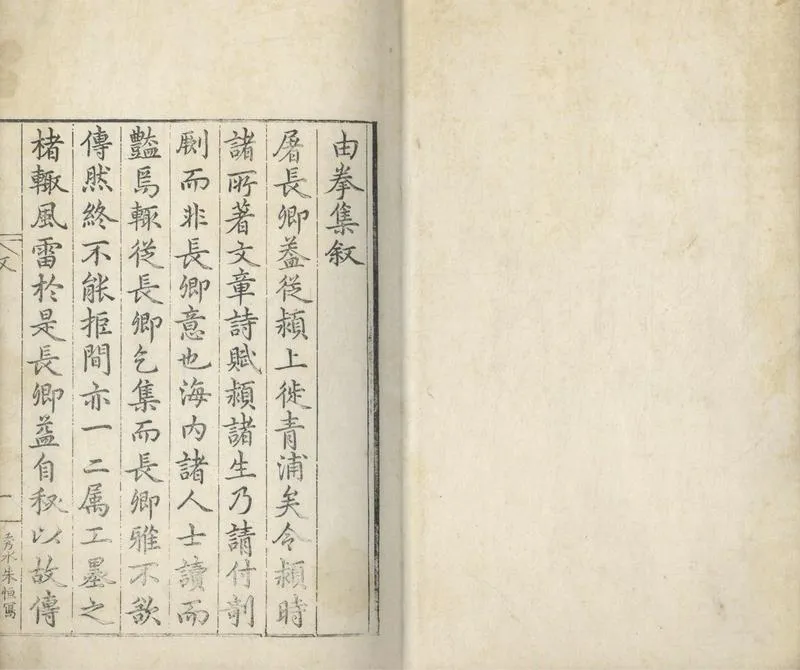 由拳集叙
屠長卿葢従潁上徙青浦矣令潁時
諸所著文章詩賦潁諸生乃請付剞
劂而非長卿意也海内諸人士讀而
豔焉輙従長卿乞集而長卿雅不欲
傳然終不能拒間亦一二属工墨之
楮輙風雷於是長卿益自秘以故傳
叙
一
秀水朱恒寫